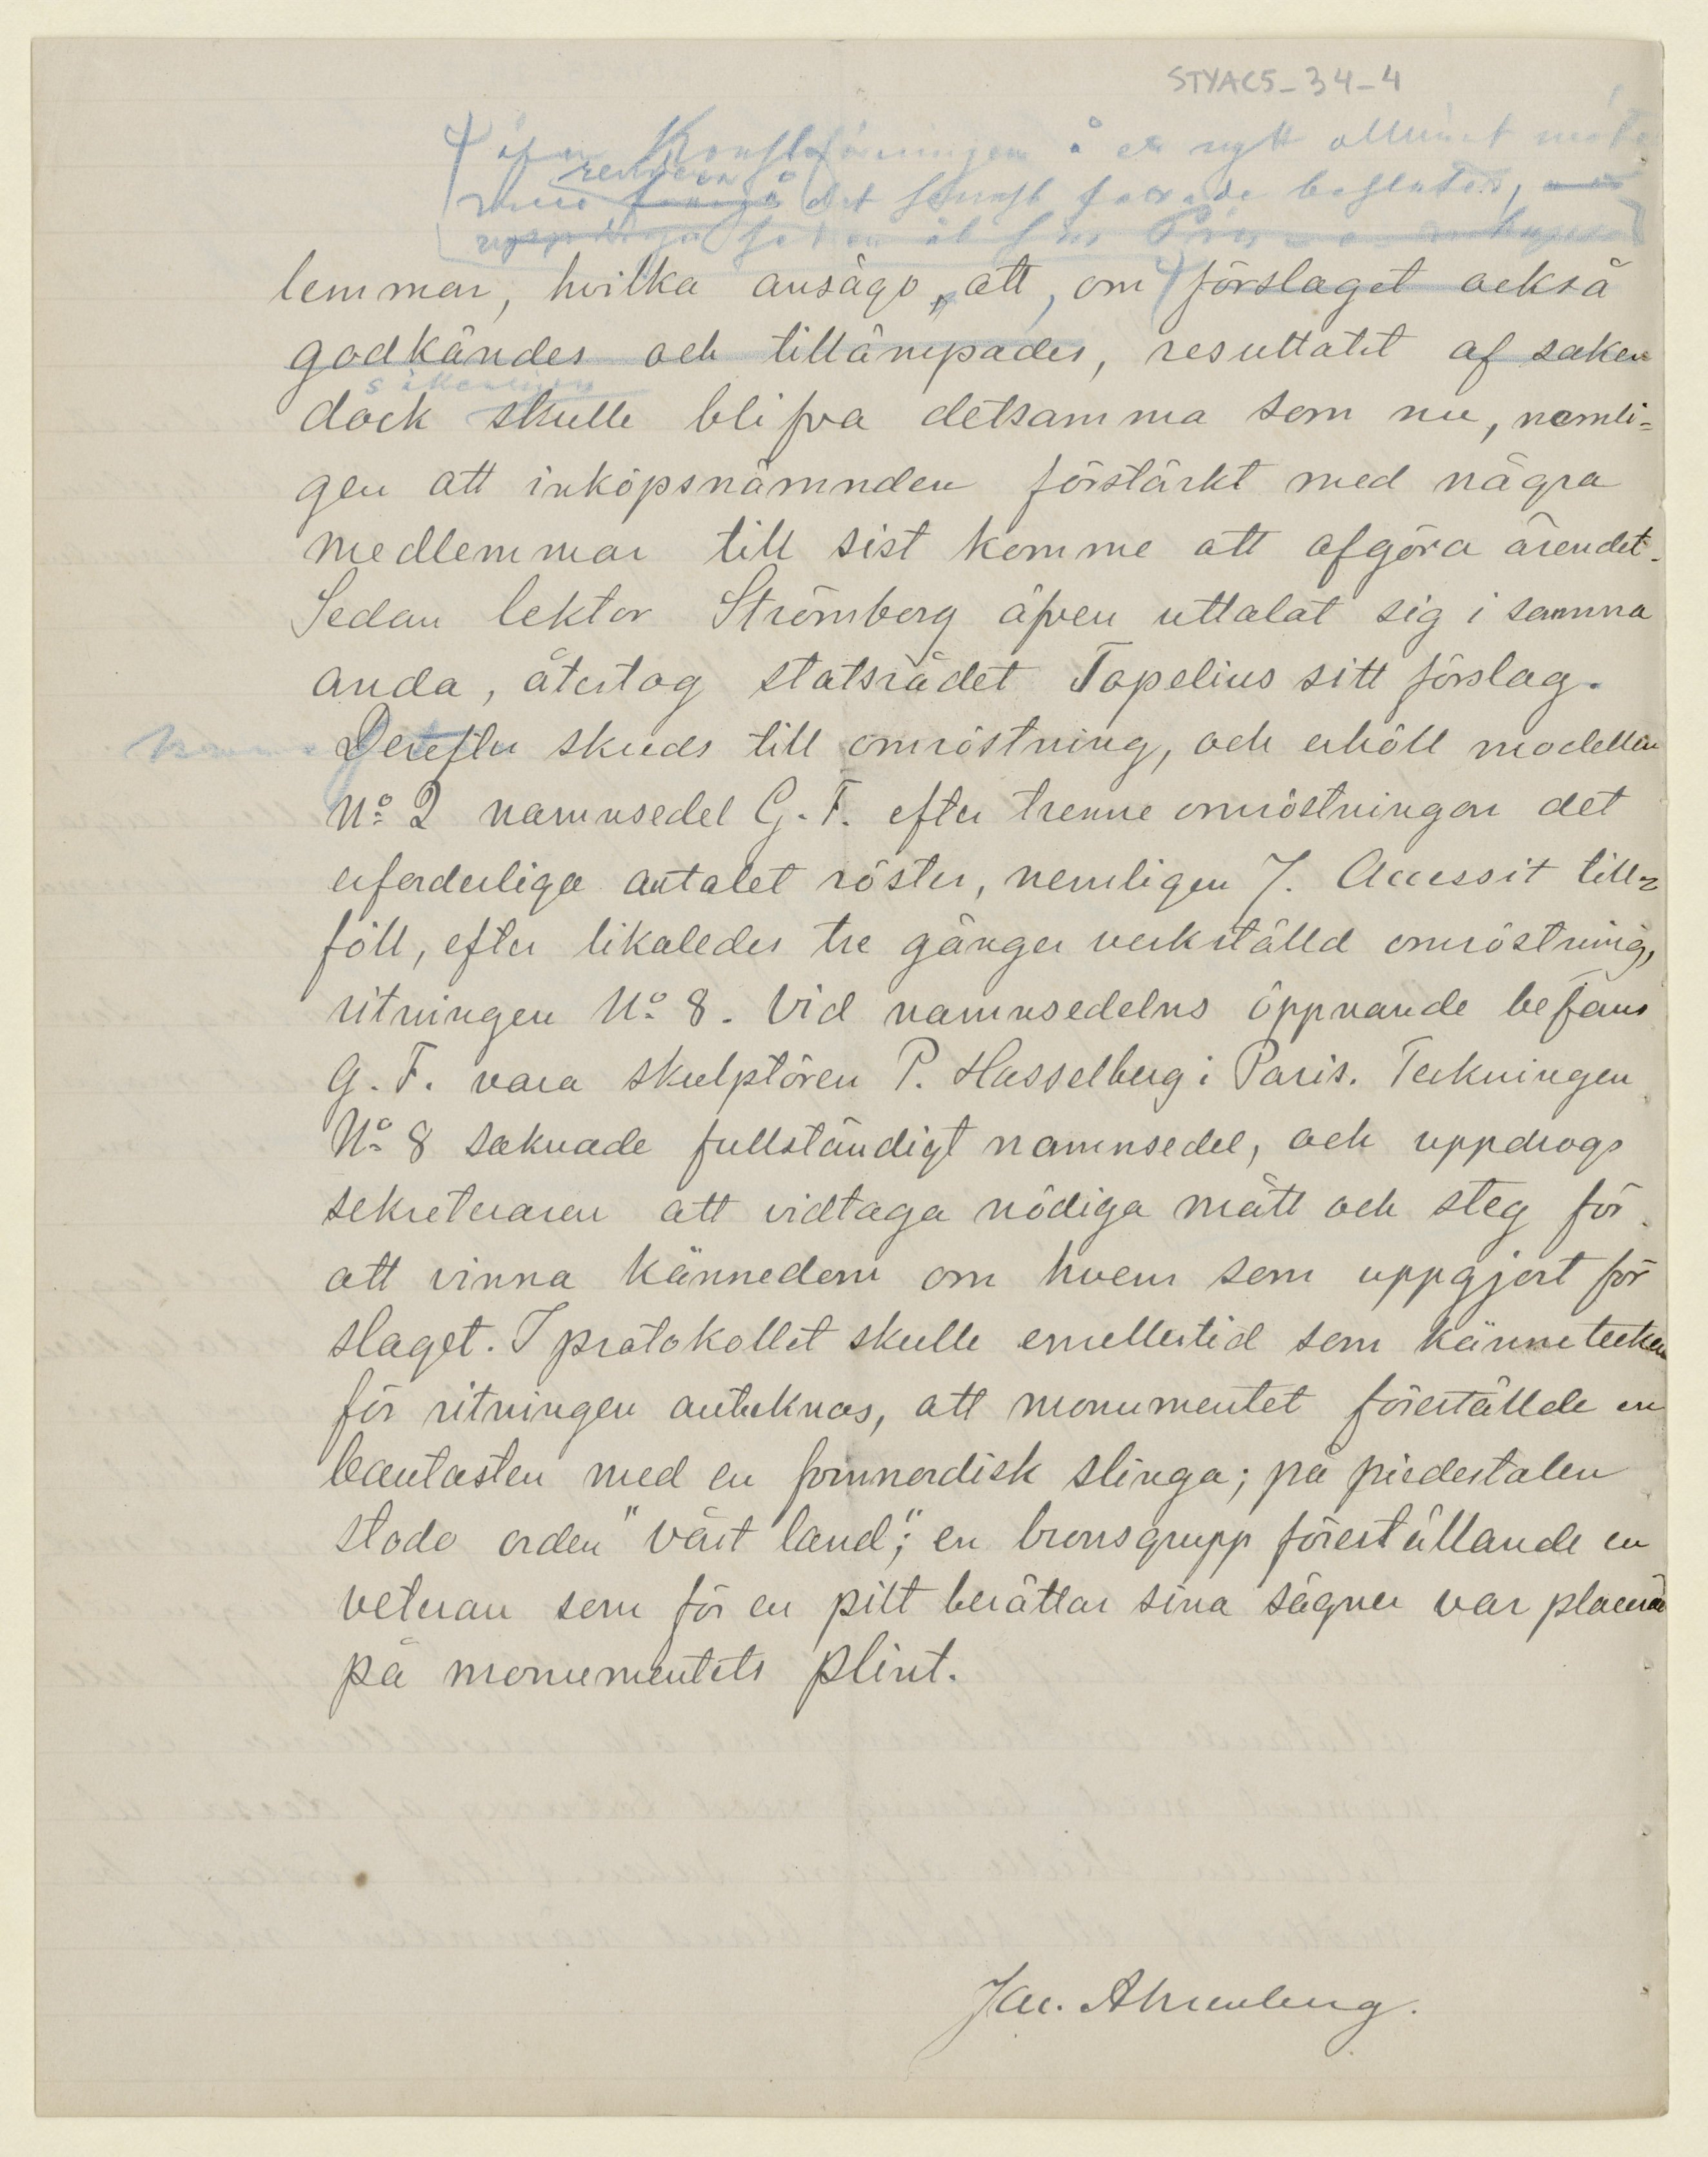 STYAC5_34-4
Konstföreningen å ett nytt allmänt möte
det senast fattade beslutet,
lemmar, hvilka ansågo, att, om förslaget också
godkändes och tillämpades, resultatet af saken
sikerligen
dock skulle blifva detsamma som nu, nemli-
gen att inköpsnämnden förstärkt med några
medlemmar till sist komme att afgöra ärendet.
Sedan lektor Strömborg äfven uttalat sig i samma
anda, återtog statsrådet Topelius sitt förslag.
Derefter skreds till omröstning, och erhöll modellen
No 2 namnsedel G. F. efter trenne omröstningar det
erforderliga antalet röster, nemligen 7. Accessit till-
föll, efter likaledes tre gånger verkställd omröstning,
ritningen No 8. Vid namnsedelns öppnande befans
G. F. vara skulptören P. Hasselberg i Paris. Teckningen
No 8 saknade fullständigt namnsedel, och uppdrogs
sekreteraren att vidtaga nödiga mått och steg för
att vinna kännedom om hvem som uppgjort för
slaget. I protokollet skulle emellertid som kännetecken
för ritningen antecknas, att monumentet förestälde en
bautasten med en fornnordisk slinga; på piedestalen
stodo orden "Vårt land"; en bronsgrupp föreställande en
veteran som för en pilt berättar sina sägner var placerad
på monumentets plint.
Jac. Ahrenberg.